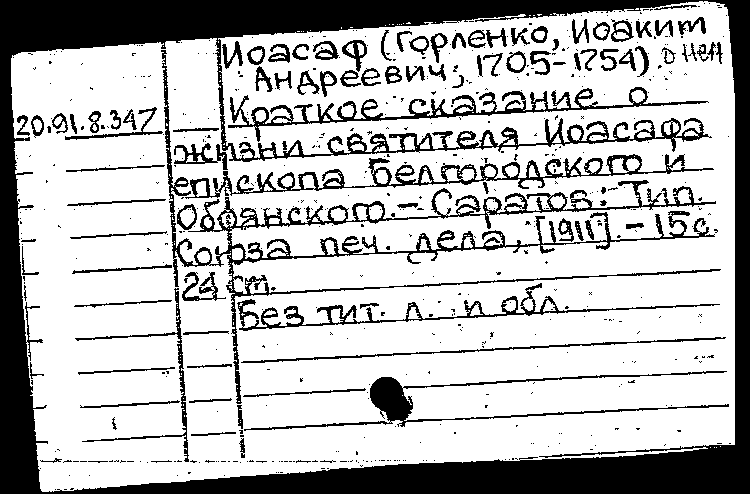 Иоасаф (Горленко, Иоаким
Андреевич; 1705-1754) о нем
20.91.8.347
Краткое сказание о
жизни святителя Иоасафа
епископа Белгородского и
Обоянского. – Саратов: Тип.
Союза печ. дела, [1911]. – 15с.
24 ст.
Без тит. л. и обл.